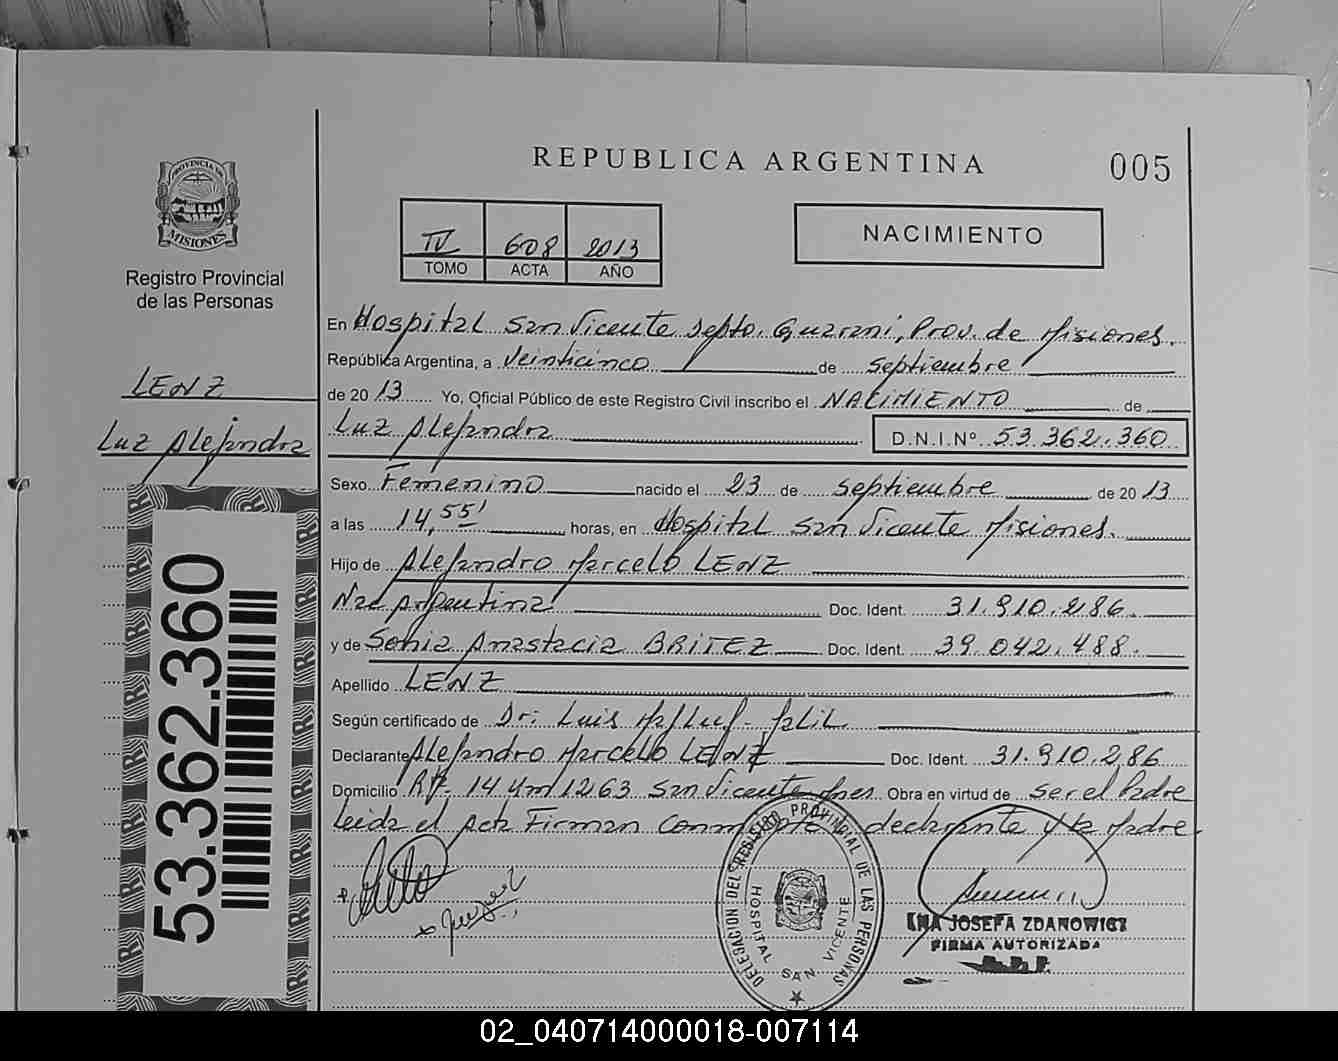 REPUBLICA ARGENTINA
005
PROVINCIA DE
MISIONES
Registro Provincial
de las Personas
LENZ
Luz Alejandra
53.362.360
IV 608 2013
TOMO ACTA AÑO
NACIMIENTO
En Hospital San Vicente Depto. Guarani, Prov. de Misiones.
República Argentina, a Veinticinco de Septiembre
de 2013 Yo, Oficial Público de este Registro Civil inscribo el NACIMIENTO de
Luz Alejandra D.N.I.Nº 53.362.360
Sexo Femenino nacido el 23 de Septiembre de 2013
a las 14,55' horas, en Hospital San Vicente Misiones.
Hijo de Alejandro Marcelo LENZ
Nac Argentina Doc. Ident. 31.910.286.
y de Sonia Anastacia BRITEZ Doc. Ident. 39.042.488.
Apellido LENZ
Según certificado de Dr: Luis
Declarante Alejandro Marcelo LENZ Doc. Ident. 31.910.286
Domicilio 14 Km 1263 San Vicente Mnes Obra en virtud de ser el Padre
Leida el Acta Firman Conmigo declarante y la Madre
DELEGACION DEL REGISTRO PROVINCIAL DE LAS PERSONAS
HOSPITAL SAN VICENTE
JOSEFA ZDANOWICZ
FIRMA AUTORIZADA
02_040714000018-007114